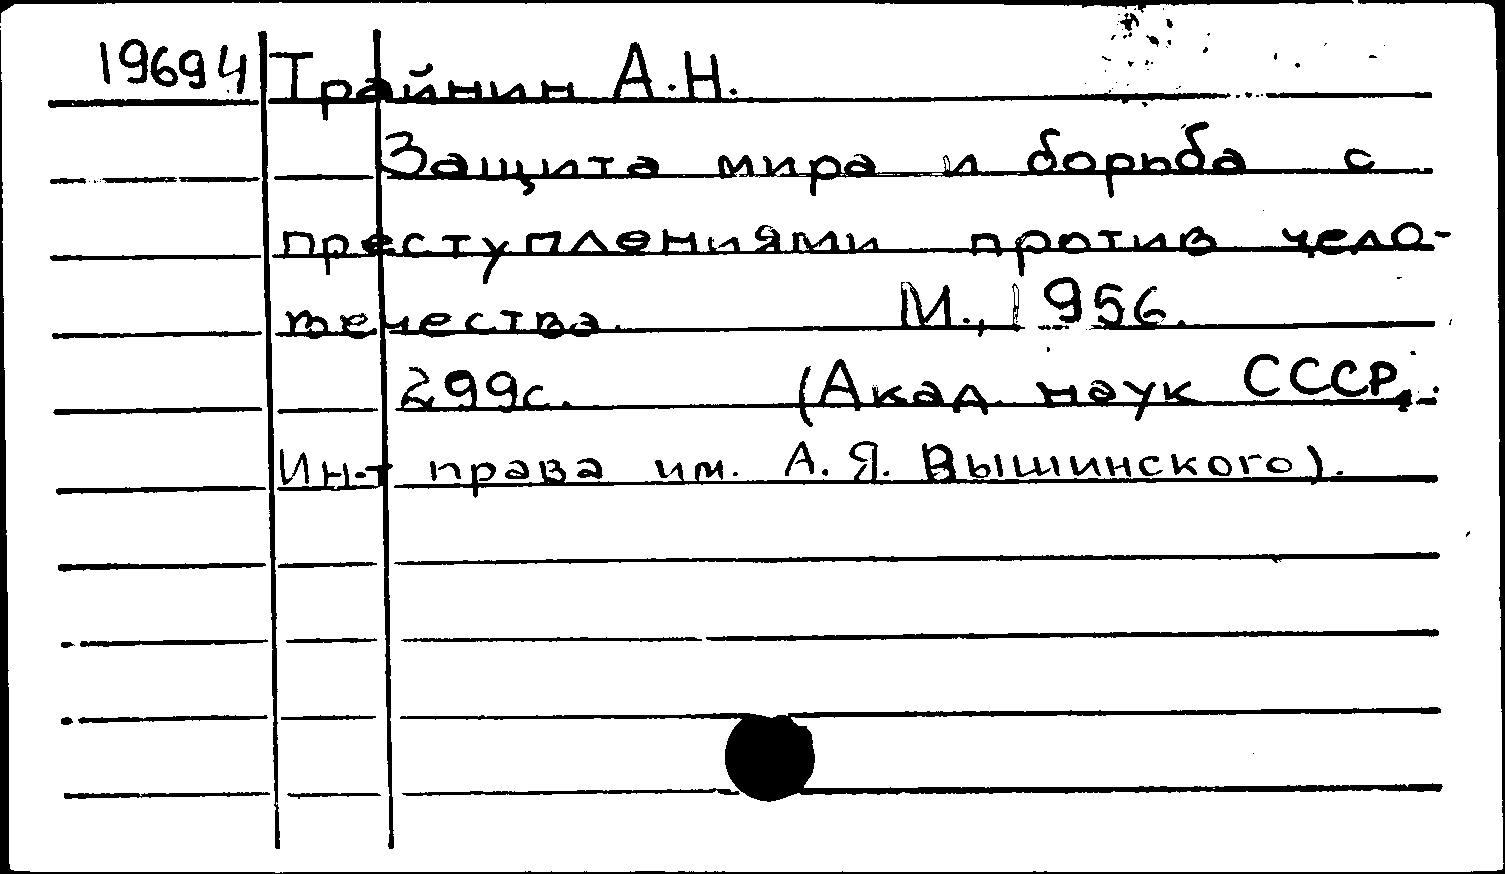 19694 Трайнин А.Н.
Защита мира и борьба с
преступлениями против чело-
вечества. М., 1956.
299с. (Акад. наук СССР,
Ин-т права им. А.Я. Вышинского).